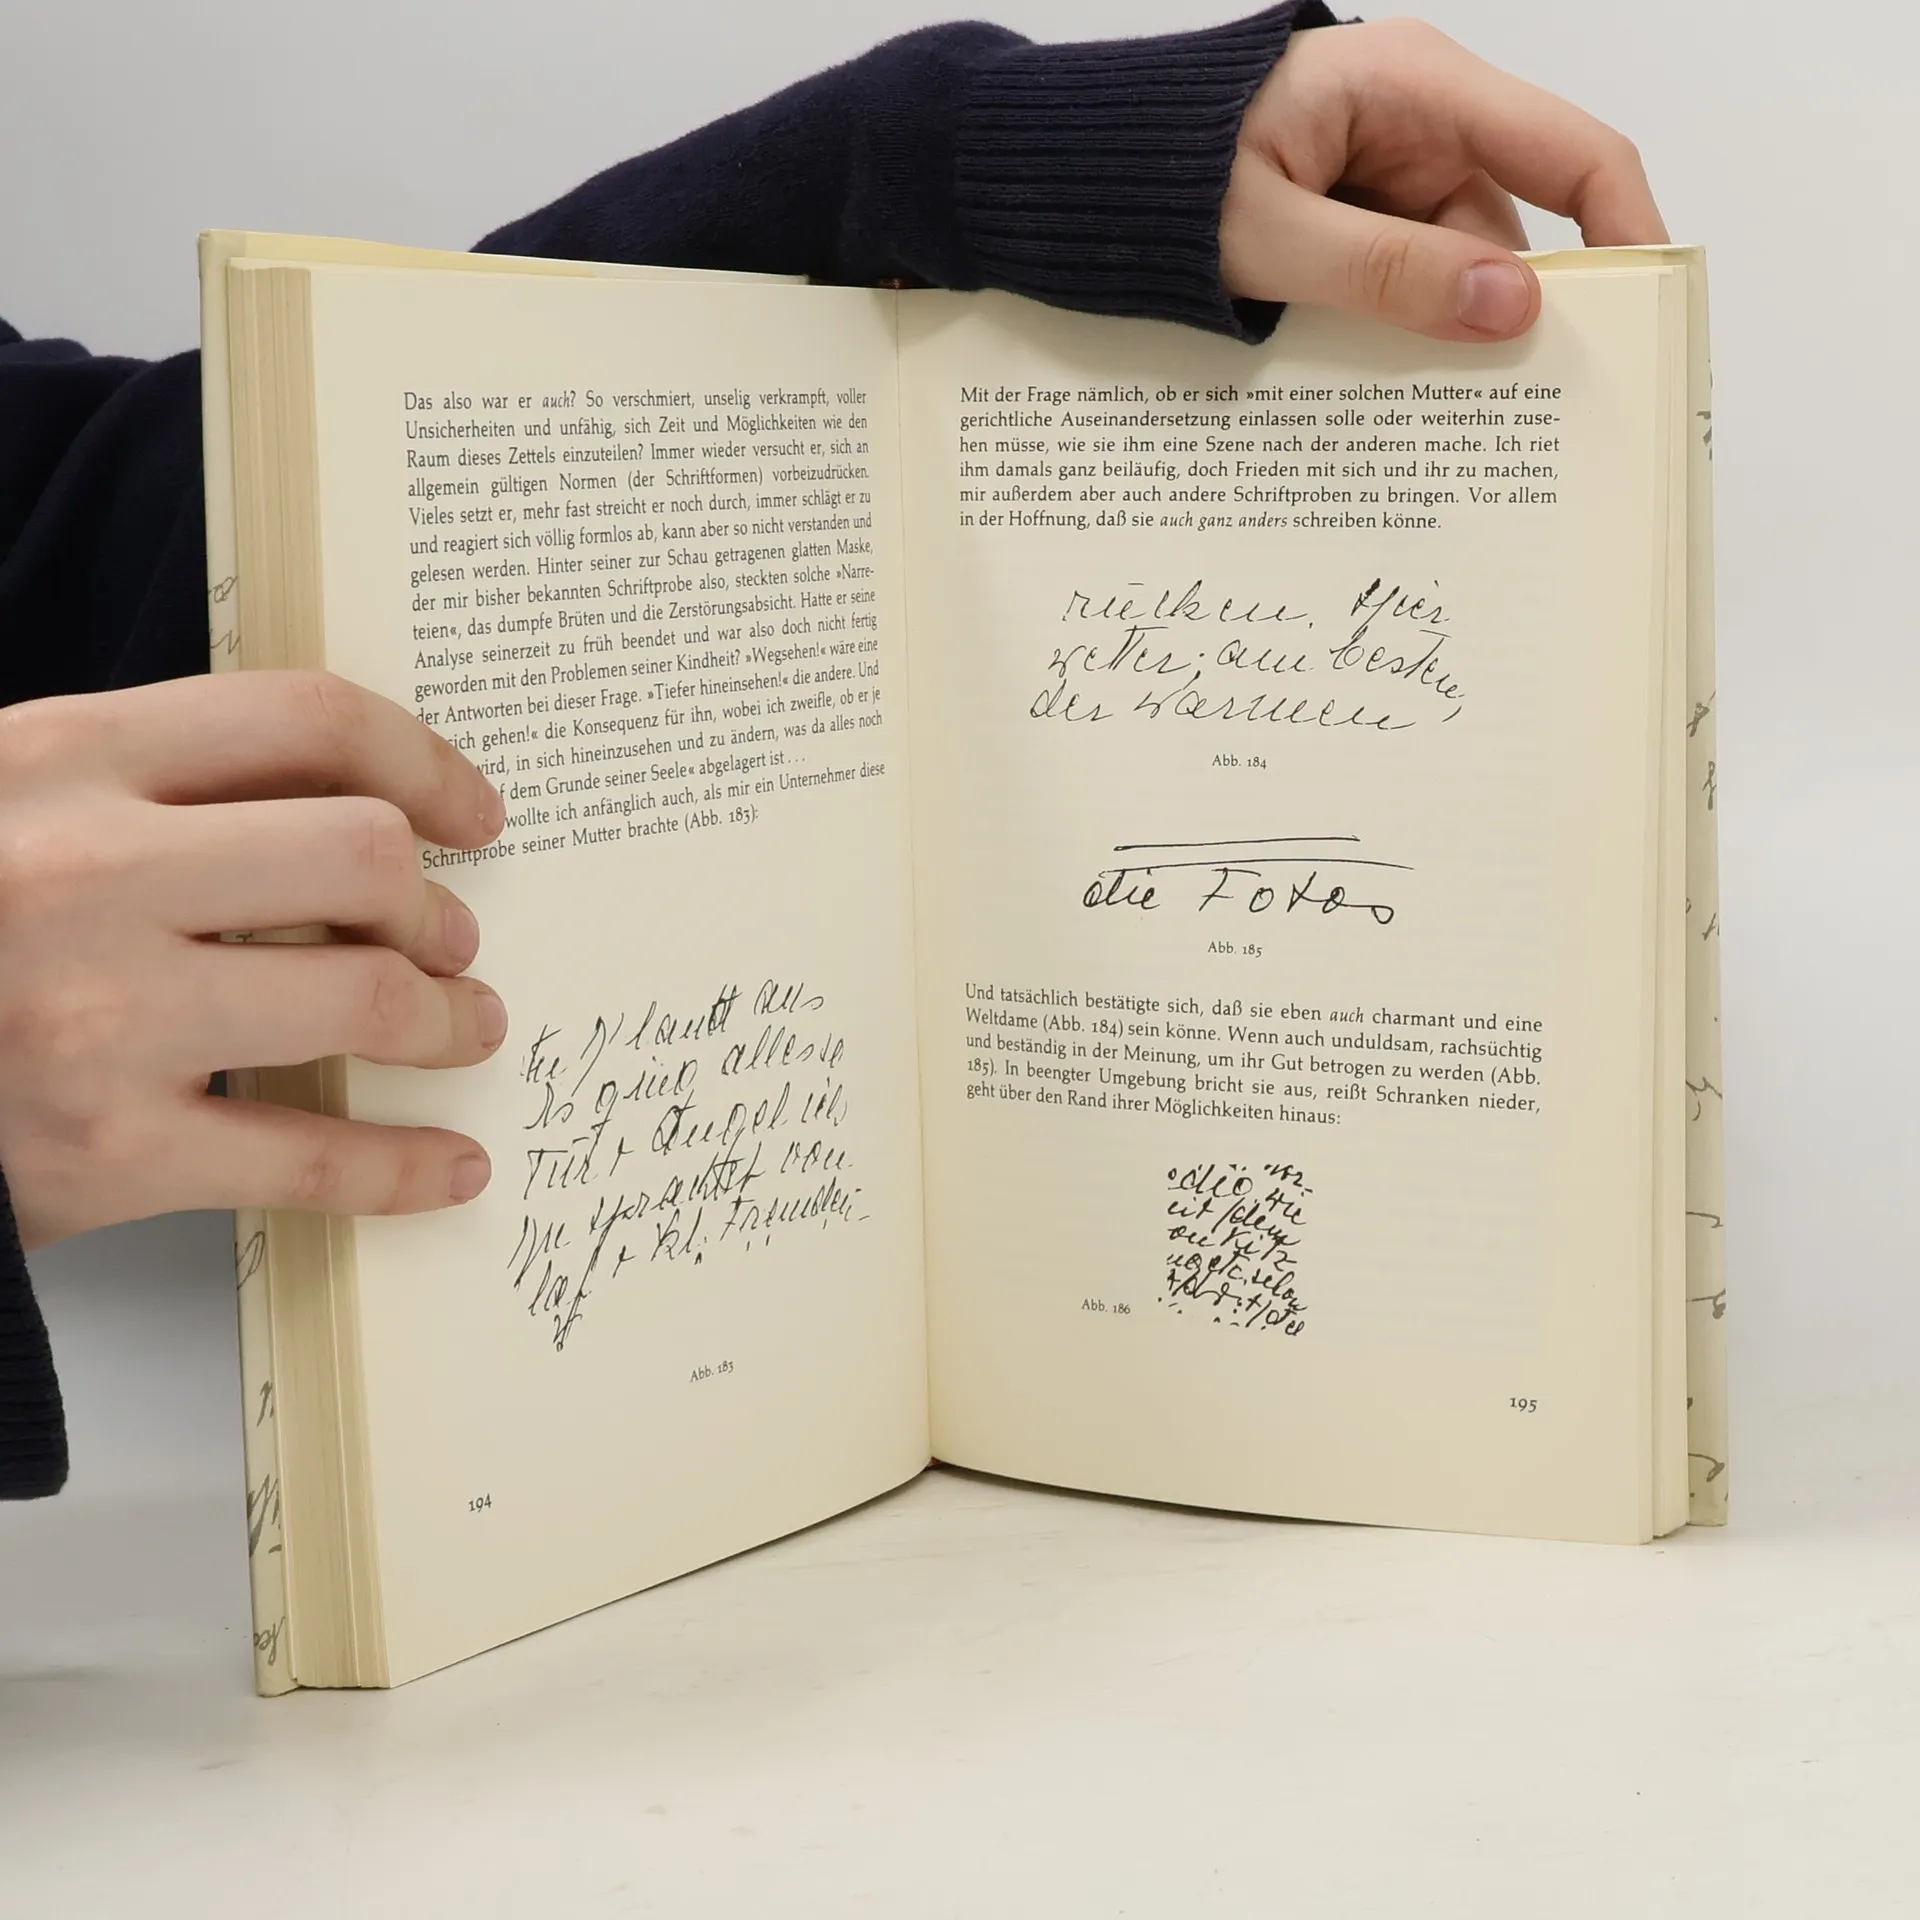 Das also war er auch? So verschmiert, unselig verkrampft, voller
Unsicherheiten und unfähig, sich Zeit und Möglichkeiten wie den
Raum dieses Zettels einzuteilen? Immer wieder versucht er, sich an
allgemein gültigen Normen (der Schriftformen) vorbeizudrücken.
Vieles setzt er, mehr fast streicht er noch durch, immer schlägt er zu
und reagiert sich völlig formlos ab, kann aber so nicht verstanden und
gelesen werden. Hinter seiner zur Schau getragenen glatten Maske,
der mir bisher bekannten Schriftprobe also, steckten solche »Narre-
teien«, das dumpfe Brüten und die Zerstörungsabsicht. Hatte er seine
Analyse seinerzeit zu früh beendet und war also doch nicht fertig
geworden mit den Problemen seiner Kindheit? »Wegsehen!« wäre eine
der Antworten bei dieser Frage. »Tiefer hineinsehen!« die andere. Und
sich gehen!« die Konsequenz für ihn, wobei ich zweifle, ob er je
wird, in sich hineinzusehen und zu ändern, was da alles noch
dem Grunde seiner Seele« abgelagert ist . . .
wollte ich anfänglich auch, als mir ein Unternehmer diese
Schriftprobe seiner Mutter brachte (Abb. 183):
aus
Tür +
+ kl.
Abb. 183
194
Mit der Frage nämlich, ob er sich »mit einer solchen Mutter« auf eine
gerichtliche Auseinandersetzung einlassen solle oder weiterhin zuse-
hen müsse, wie sie ihm eine Szene nach der anderen mache. Ich riet
ihm damals ganz beiläufig, doch Frieden mit sich und ihr zu machen,
mir außerdem aber auch andere Schriftproben zu bringen. Vor allem
in der Hoffnung, daß sie auch ganz anders schreiben könne.
rücken. Hier
wetter; am besten,
der warmen
Abb. 184
die Fotos
Abb. 185
Und tatsächlich bestätigte sich, daß sie eben auch charmant und eine
Weltdame (Abb. 184) sein könne. Wenn auch unduldsam, rachsüchtig
und beständig in der Meinung, um ihr Gut betrogen zu werden (Abb.
185). In beengter Umgebung bricht sie aus, reißt Schranken nieder,
geht über den Rand ihrer Möglichkeiten hinaus:
Abb. 186
195